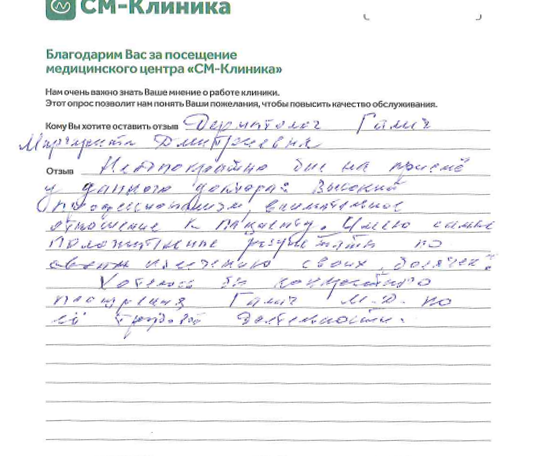 СМ-Клиника
Благодарим Вас за посещение
медицинского центра «СМ-Клиника»
Нам очень важно знать Ваше мнение о работе клиники.
Этот опрос позволит нам понять Ваши пожелания, чтобы повысить качество обслуживания.
Кому Вы хотите оставить отзыв Дерматолог Галич
Маргарита Дмитриевна
Отзыв Неоднократно был на приеме
у данного доктора. Высокий
профессионализм, внимательное
отношение к пациенту. Имею самые
положительные результаты по
лечению своих болячек.
Хотелось бы конкретного
поощрения Галич М.Д. по
её трудовой деятельности.